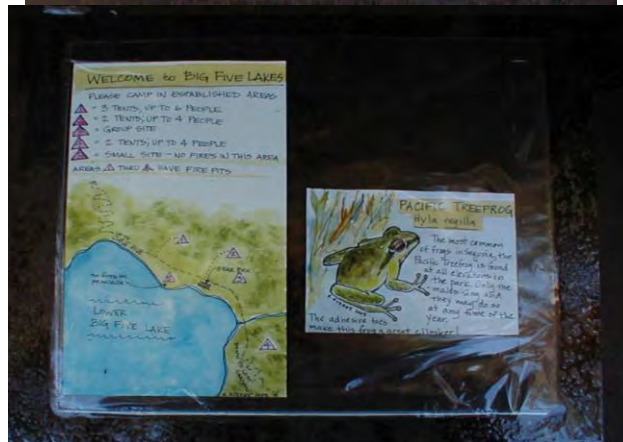 WELCOME to BIG FIVE LAKES
PLEASE CAMP IN ESTABLISHED AREAS
= 3 TENTS, UP TO 6 PEOPLE
= 2 TENTS, UP TO 4 PEOPLE
= GROUP SITE
= 2 TENTS, UP TO 4 PEOPLE
= SMALL SITE - NO FIRES IN THIS AREA
AREAS THRU HAVE FIRE PITS
BEAR BOX
LOWER
BIG FIVE LAKE
PACIFIC TREEFROG
Hyla regilla
The most common
of frogs in Sequoia, the
Pacific Treefrog is found
at all elevations in
the park. Only the
males sing and
they may do so
at any time of the
year.
The adhesive toes
make this frog a great climber!